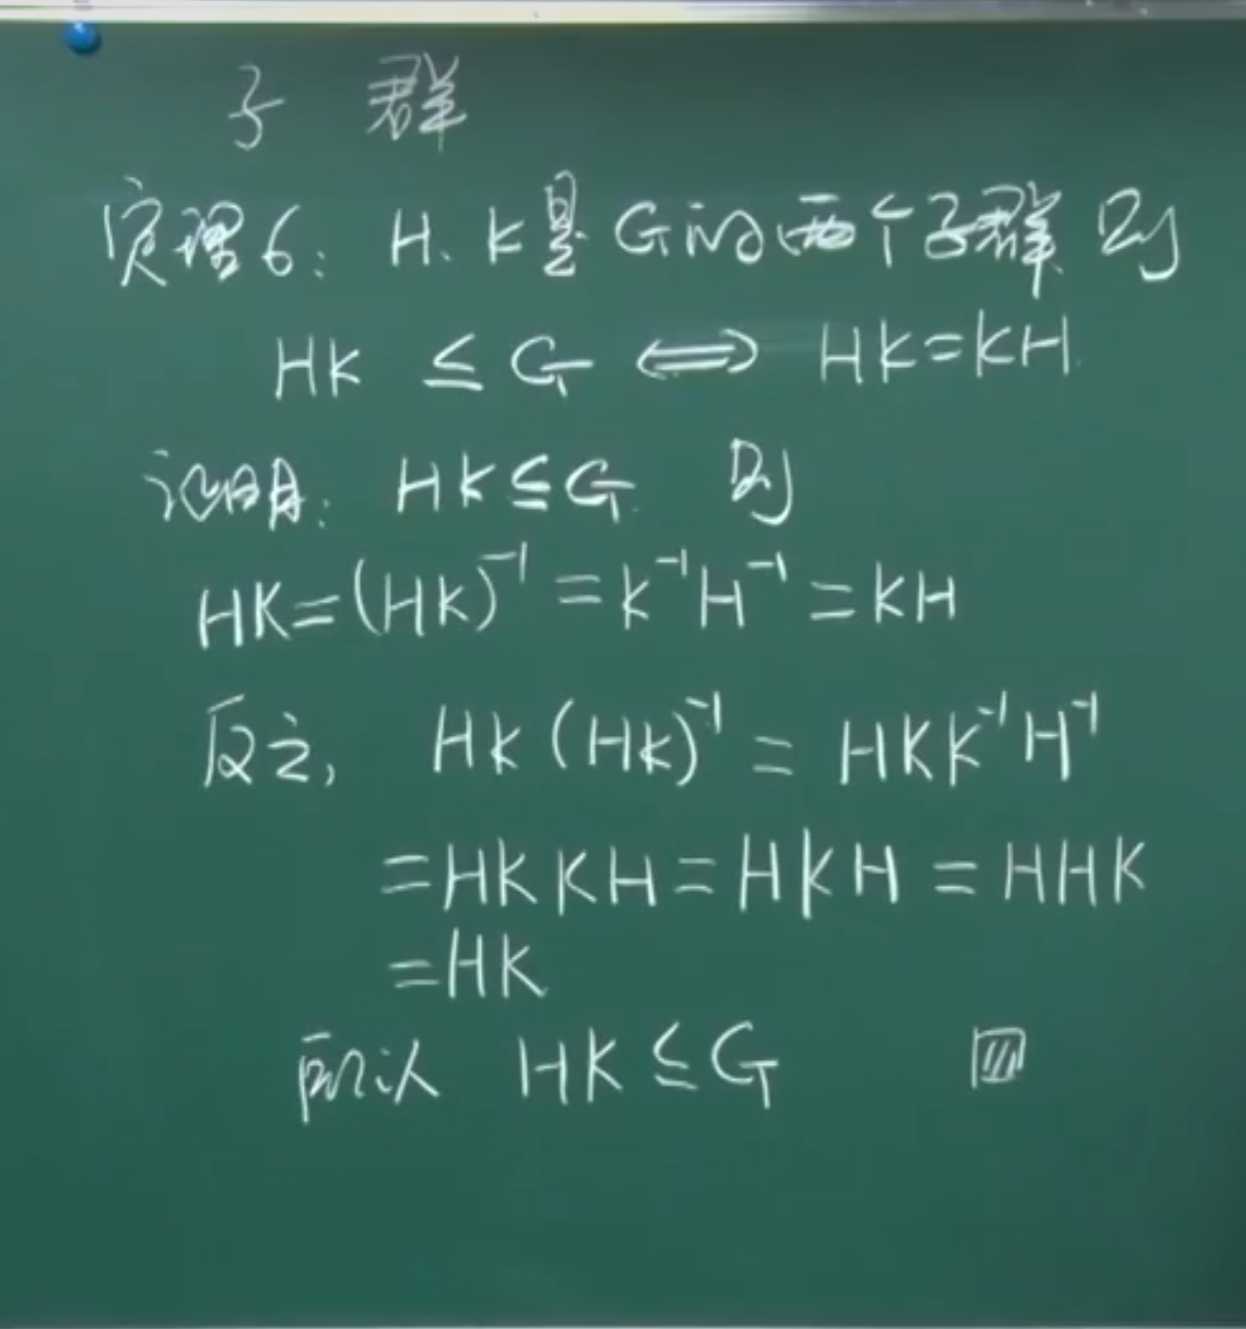 子 群
定理6: H、K是G的两个子群 则
HK ≤ G ⟺ HK=KH.
证明: HK≤G. 则
HK=(HK)⁻¹=K⁻¹H⁻¹=KH
反之, HK(HK)⁻¹=HKK⁻¹H⁻¹
=HKKH=HKH=HHK
=HK.
所以 HK≤G